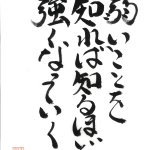 弱いことを
知れば知るほど
強くなっていく